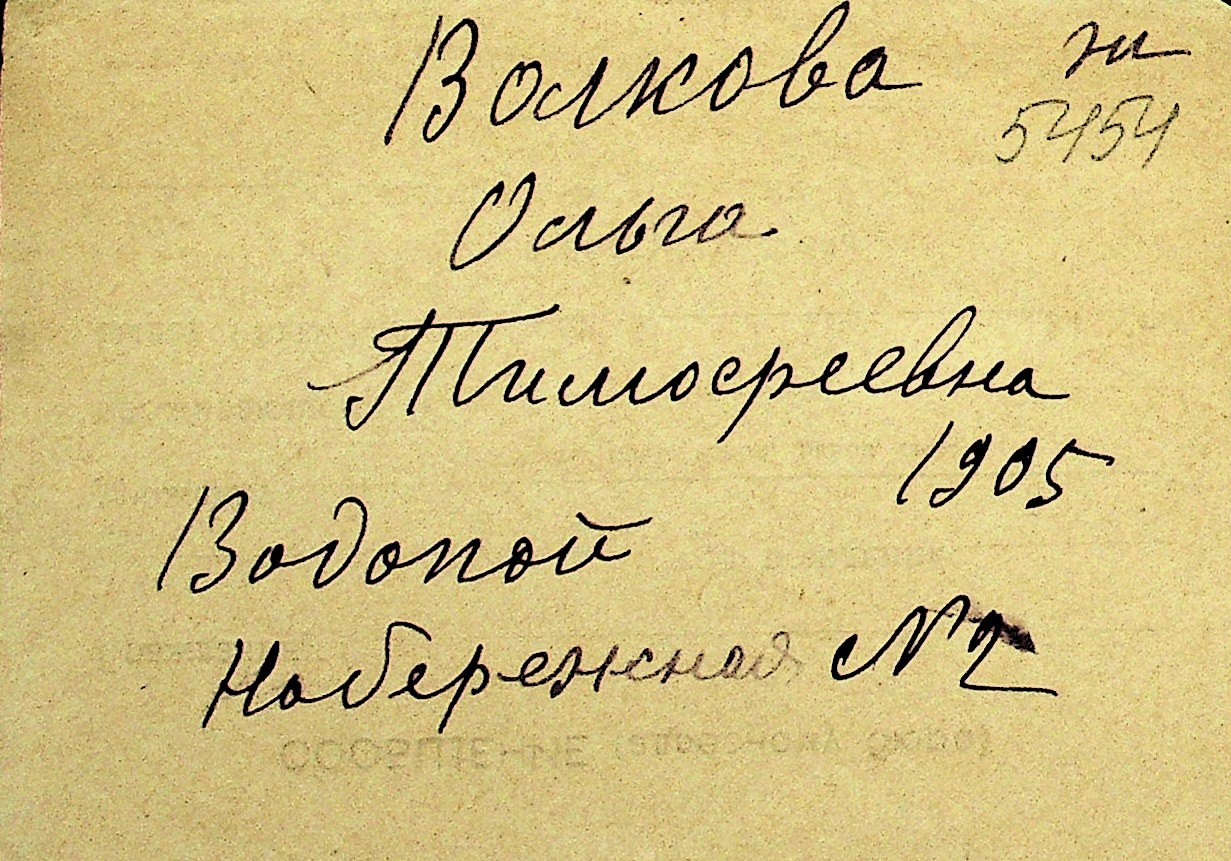 Волкова
5454
Ольга
Тимофеевна
1905
Водопой
Набережная № 2
СООБЩЕНИЕ